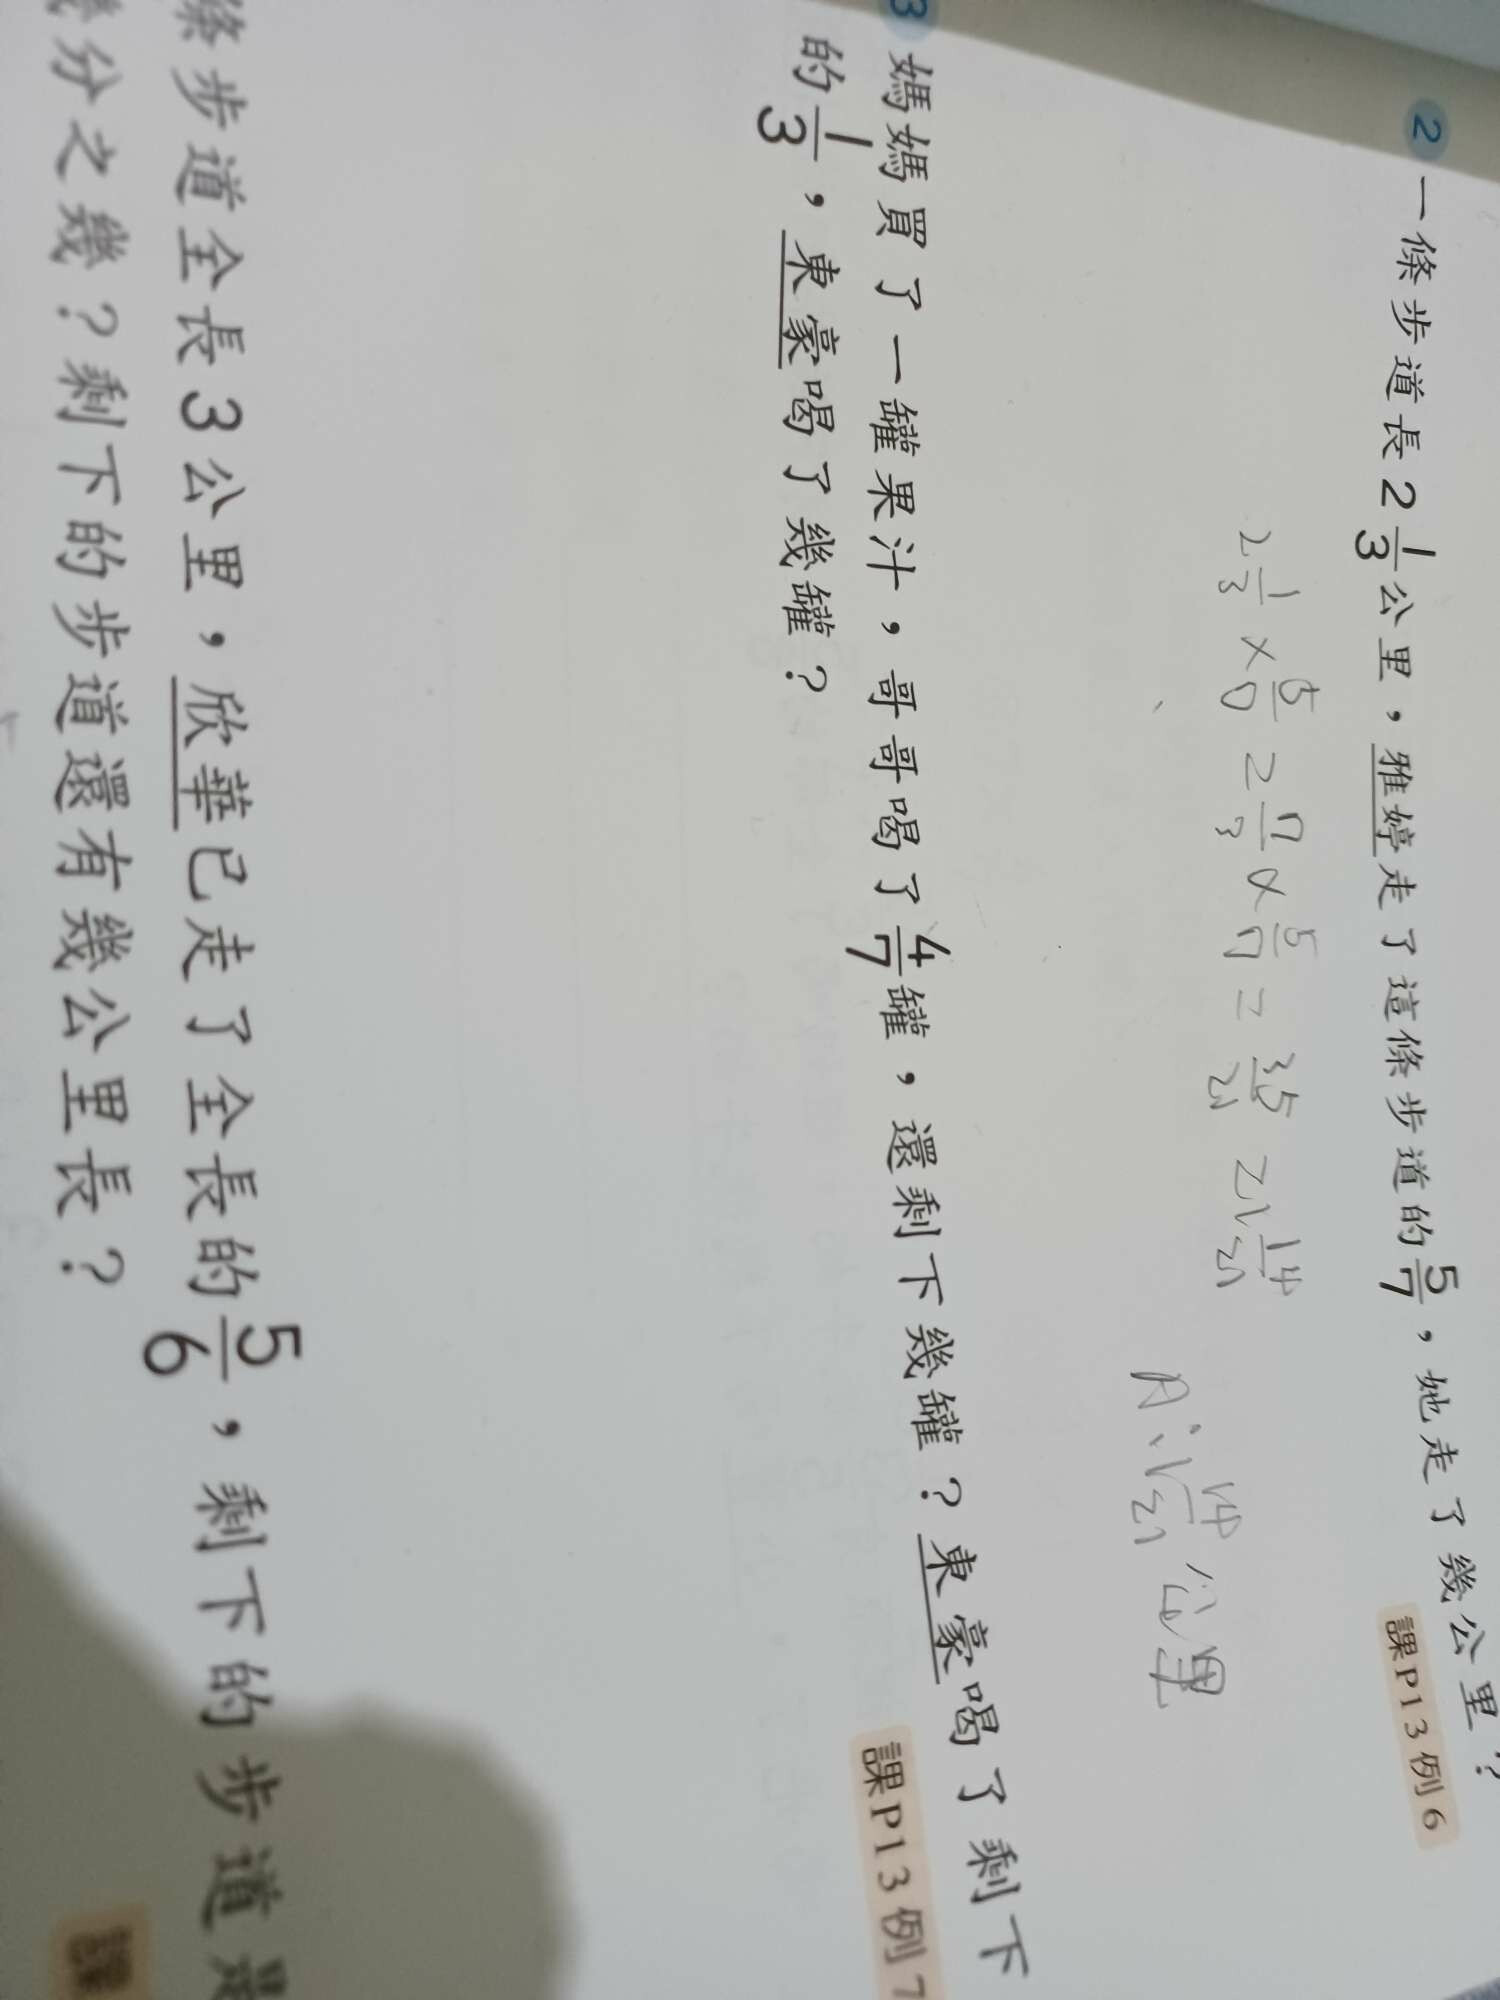 2 一條步道長2 1/3公里，雅婷走了這條步道的5/7，她走了幾公里？
課P13例6
2 1/3 × 5/7 = 7/3 × 5/7 = 35/21 = 1 14/21
A：1 14/21 公里
3 媽媽買了一罐果汁，哥哥喝了4/7罐，還剩下幾罐？東豪喝了剩下
的1/3，東豪喝了幾罐？
課P13例7
條步道全長3公里，欣華已走了全長的5/6，剩下的步道是
幾分之幾？剩下的步道還有幾公里長？
課